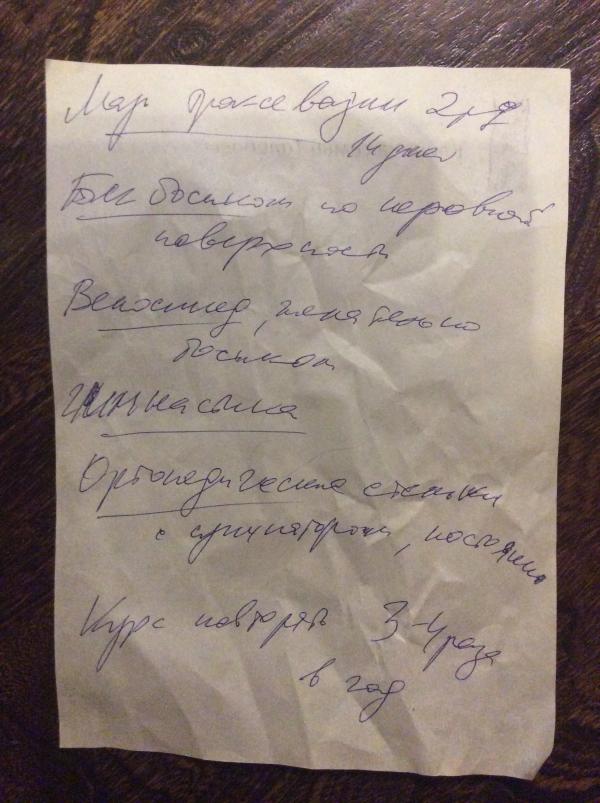 Мазь троксевазин 2 р/д
14 дней
Бег босиком по неровной
поверхности
Велосипед, желательно
босиком
Гимнастика
Ортопедические стельки
с супинатором, постоянно
Курс повторять 3-4 раза
в год